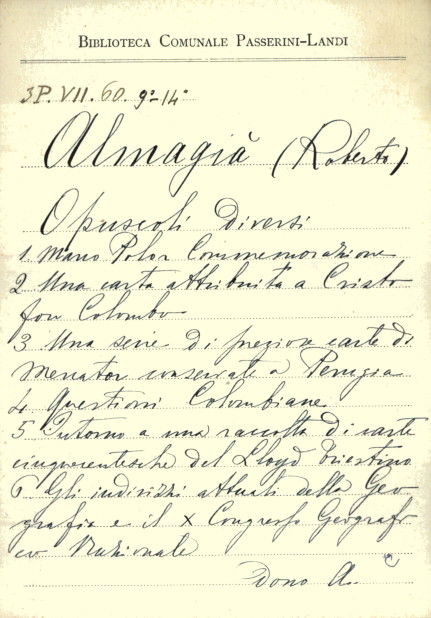 BIBLIOTECA COMUNALE PASSERINI-LANDI
3P. VII. 60. 9º-14º
Almagià (Roberto)
Opuscoli diversi
1 Marco Polo: Commemorazione
2 Una carta attribuita a Cristo
foro Colombo
3 Una serie di preziose carte di
Mercator conservate a Perugia
4 Questioni Colombiane
5 Intorno a una raccolta di carte
cinquecentesche del Lloyd Triestino
6 Gli indirizzi attuali della Geo
grafia e il X Congresso Geografi
co Nazionale
Dono A.